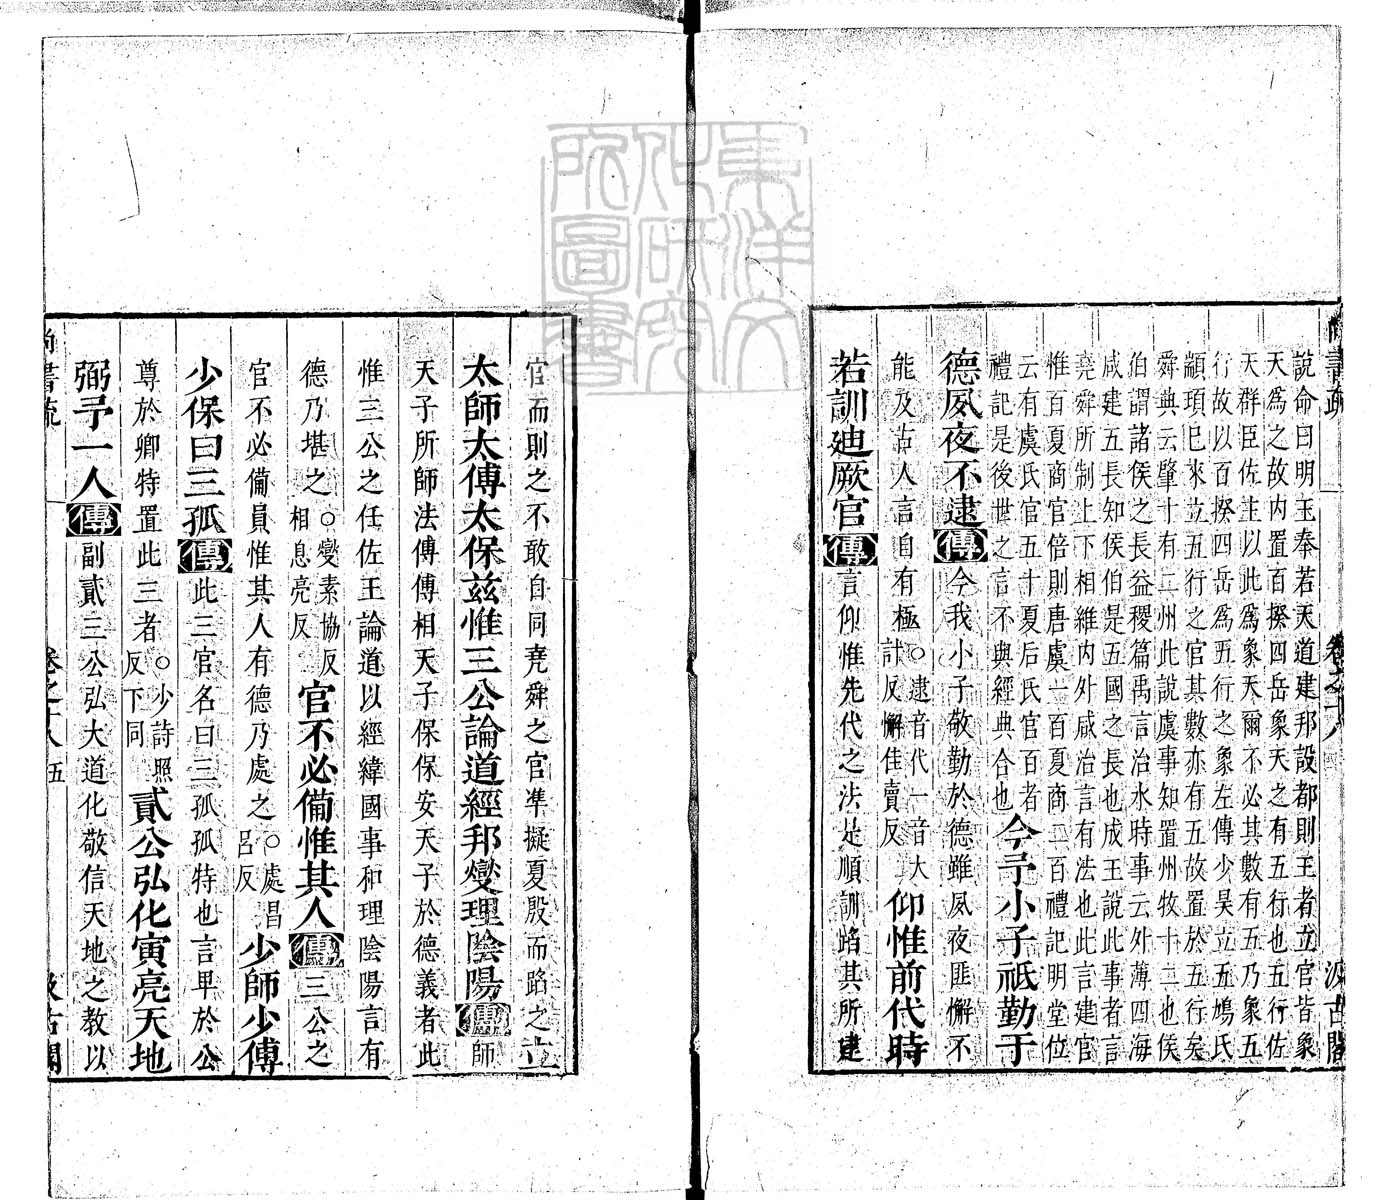 尚書疏
卷之十八
汲古閣
說命曰明王奉若天道建邦設都則王者立官皆象
天爲之故内置百揆四岳象天之有五行也五行佐
天群臣佐主以此爲象天爾不必其數有五乃象五
行故以百揆四岳爲五行之象左傳少昊立五鳩氏
顓頊已來立五行之官其數亦有五故置於五行矣
舜典云肇十有二州此說虞事知置州牧十二也侯
伯謂諸侯之長益稷篇禹言治水時事云外薄四海
咸建五長知侯伯是五國之長也成王說此事者言
堯舜所制上下相維内外咸治言有法也此言建官
惟百夏商官倍則唐虞一百夏商二百禮記明堂位
云有虞氏官五十夏后氏官百者
禮記是後世之言不與經典合也
今予小子祗勤于
德夙夜不逮傳今我小子敬勤於德雖夙夜匪懈不
能及古人言自有極
○逮音代一音大
計反懈佳賣反
仰惟前代時
若訓迪厥官傳言仰惟先代之法是順訓蹈其所建
官而則之不敢自同堯舜之官準擬夏殷而蹈之立
太師太傅太保兹惟三公論道經邦燮理陰陽傳師
天子所師法傅傅相天子保保安天子於德義者此
惟三公之任佐王論道以經緯國事和理陰陽言有
德乃堪之
○燮素協反
相息亮反
官不必備惟其人傳三公之
官不必備員惟其人有德乃處之
○處昌
呂反
少師少傅
少保曰三孤傳此三官名曰三孤孤特也言卑於公
尊於卿特置此三者
○少詩照
反下同
貳公弘化寅亮天地
弼予一人傳副貳三公弘大道化敬信天地之教以
尚書疏
卷之十八
五
汲古閣
東洋文
化研究
所圖書